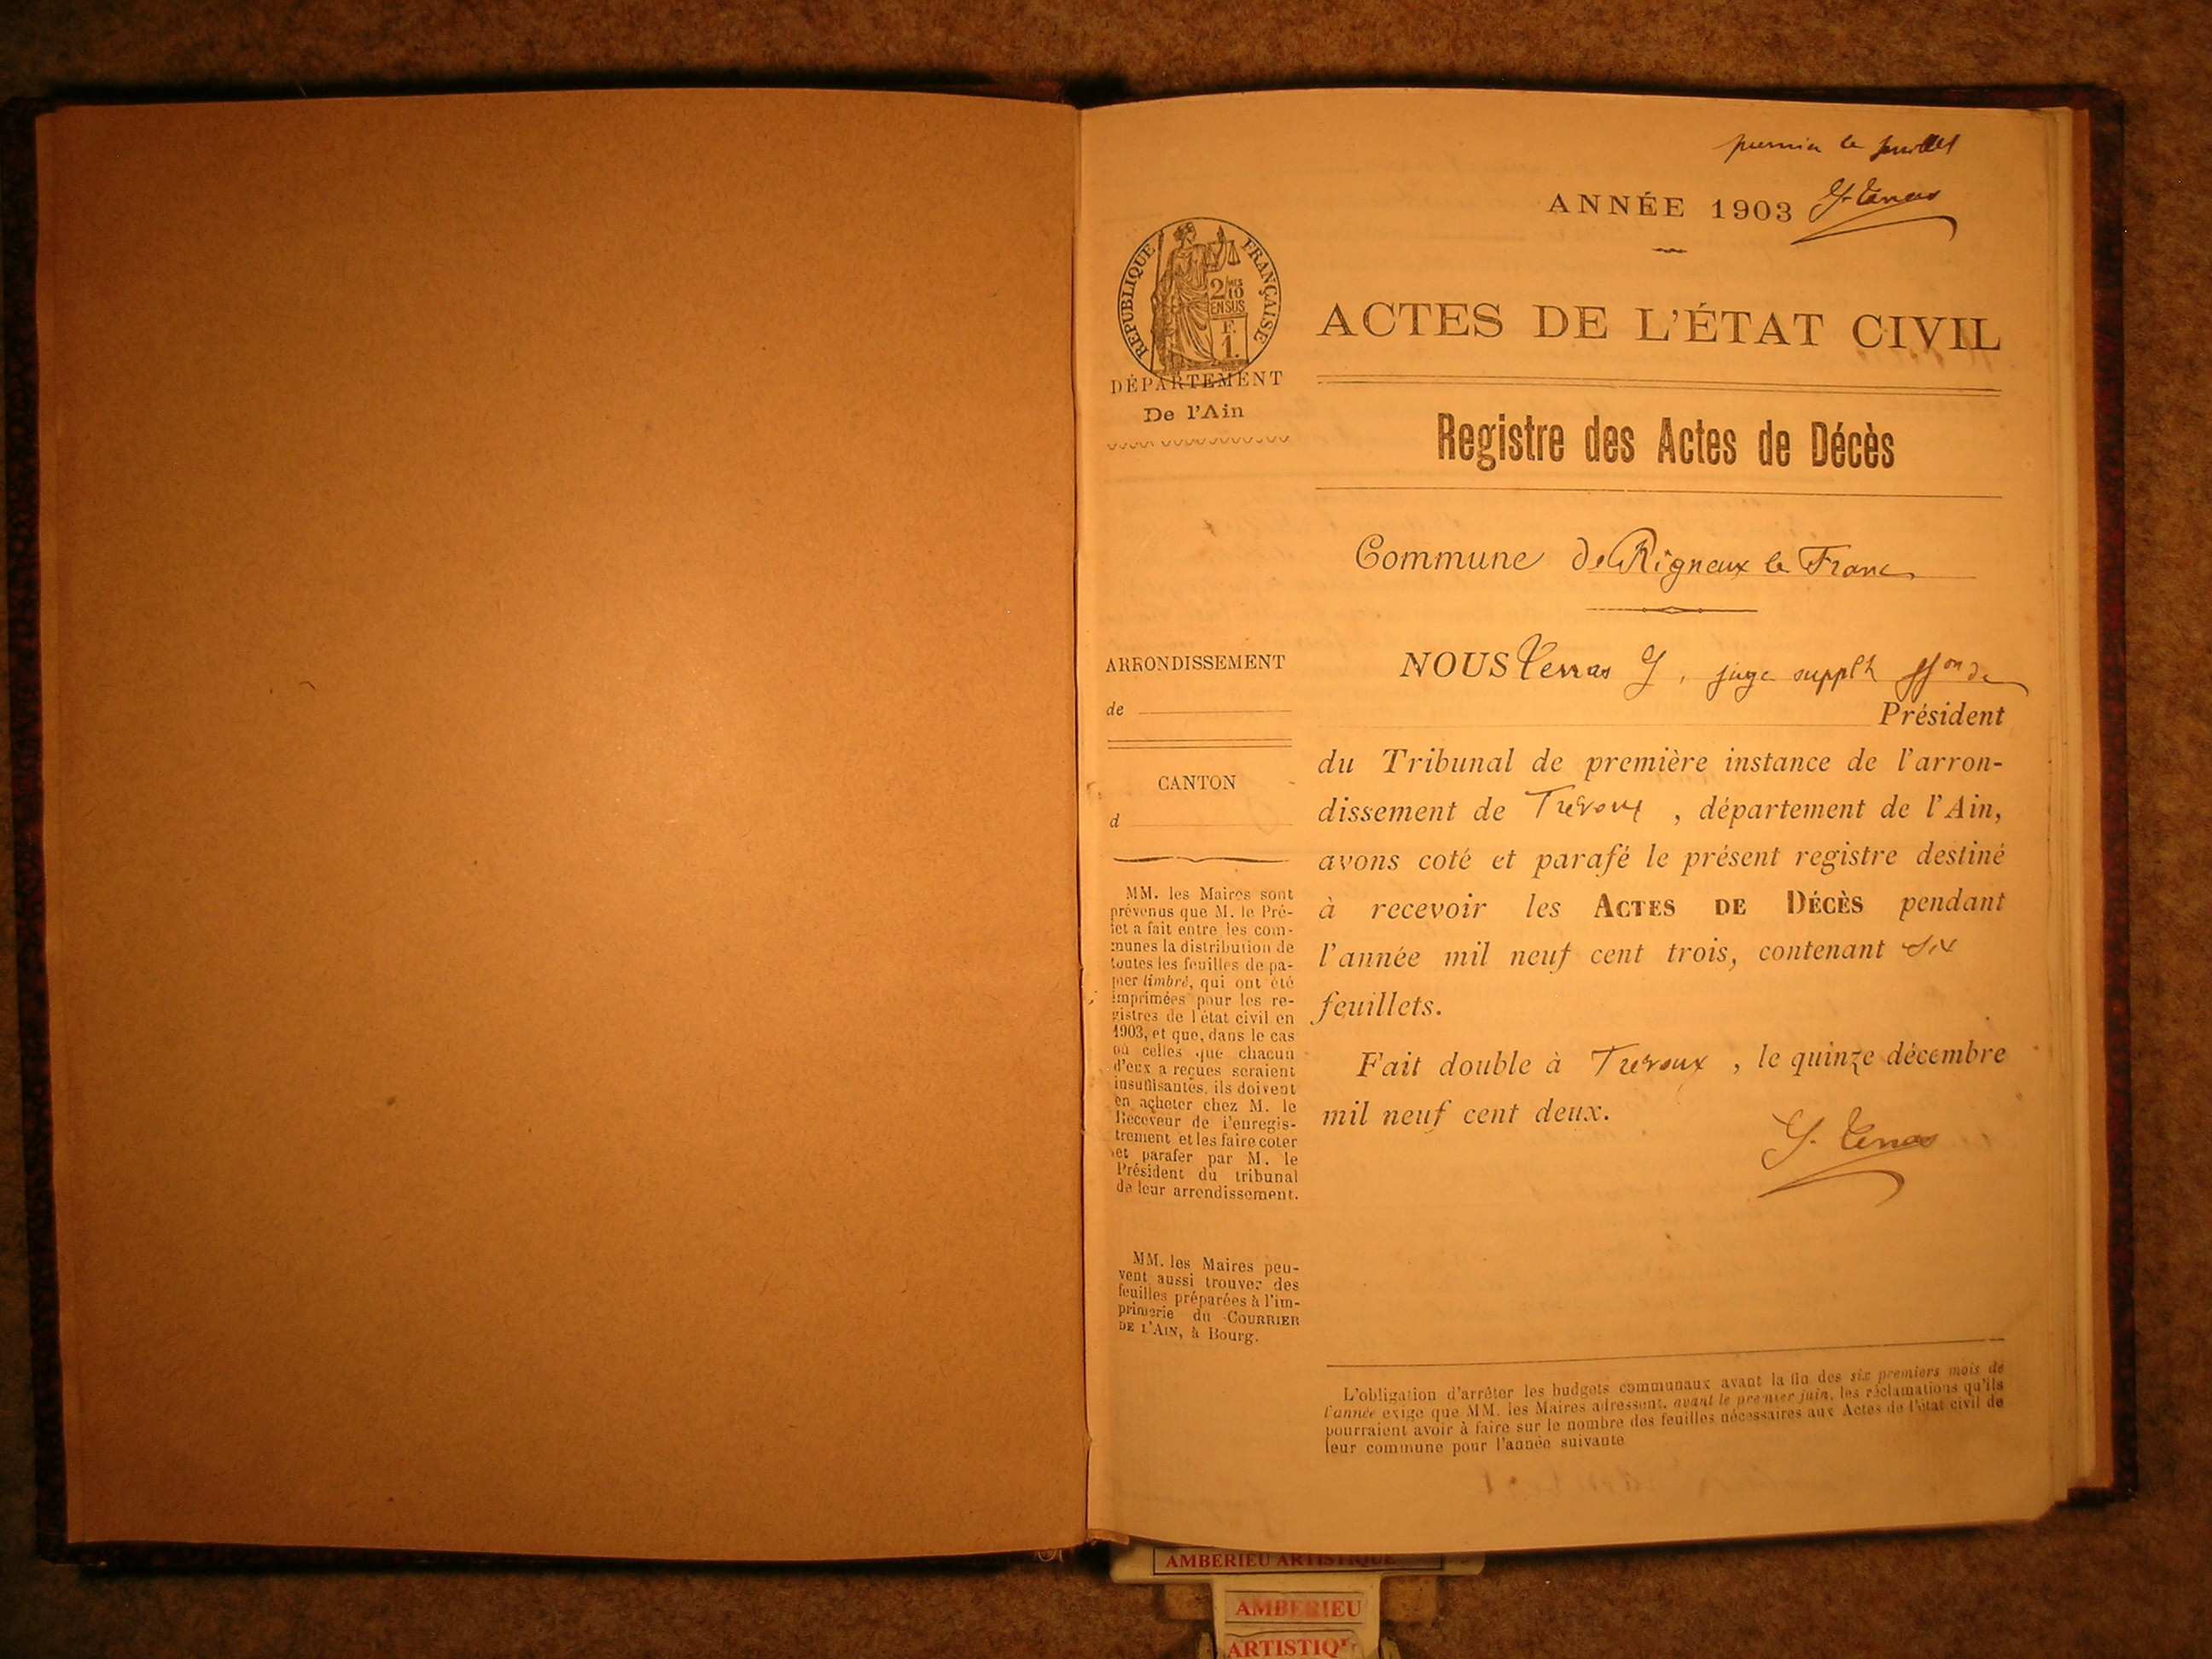 premier feuillet
ANNÉE 1903
RÉPUBLIQUE FRANÇAISE
2/10 EN SUS
F.
1.
ACTES DE L'ÉTAT CIVIL
DÉPARTEMENT
De l'Ain
Registre des Actes de Décès
Commune de Rigneux le Franc
ARRONDISSEMENT
de
CANTON
d
MM. les Maires sont
prévenus que M. le Pré-
fet a fait entre les com-
munes la distribution de
toutes les feuilles de pa-
pier timbré, qui ont été
imprimées pour les re-
gistres de l'état civil en
1903, et que, dans le cas
où celles que chacun
d'eux a reçues seraient
insuffisantes, ils doivent
en acheter chez M. le
Receveur de l'enregis-
trement et les faire coter
et parafer par M. le
Président du tribunal
de leur arrondissement.
MM. les Maires peu-
vent aussi trouver des
feuilles préparées à l'im-
primerie du COURRIER
DE L'AIN, à Bourg.
NOUS juge suppl^t ff^on de
Président
du Tribunal de première instance de l'arron-
dissement de Trévoux, département de l'Ain,
avons coté et parafé le présent registre destiné
à recevoir les ACTES DE DÉCÈS pendant
l'année mil neuf cent trois, contenant six
feuillets.
Fait double à Trévoux, le quinze décembre
mil neuf cent deux.
L'obligation d'arrêter les budgets communaux avant la fin des six premiers mois de
l'année exige que MM. les Maires adressent, avant le premier juin, les réclamations qu'ils
pourraient avoir à faire sur le nombre des feuilles nécessaires aux Actes de l'état civil de
leur commune pour l'année suivante
AMBERIEU ARTISTIQUE
AMBERIEU
ARTISTIQU